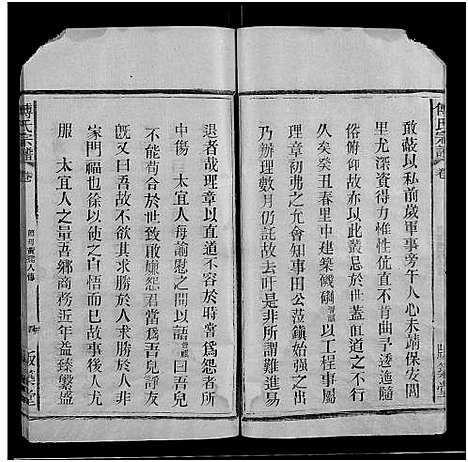 敢鼓以私前歲軍事旁午人心未靖保安閭
里尤深資得力惟性伉直不肯曲予透隨
俗俯仰故亦以此叢忌於世蓋直道之不行
久矣癸丑春里中建築碉以工程事屬
理章初弗之允會知事田公蒞鎮始强之出
乃辦理數月仍託故去吁是非所謂難進易
退者哉理章以直道不容於時常爲怨者所
中傷 太宜人每諭慰之間以語曰吾兒
不能苟合於世致敢嫌怨君當爲吾兒諍友
既又曰吾故不欲其求勝於人求勝於人非
家門福也徐以使之平其矜已故事後人尤
服 太宜人之量吾鄉商務近年益臻繁盛
傅氏宗譜 卷
傅氏宗譜 卷
四
版築堂
版築堂